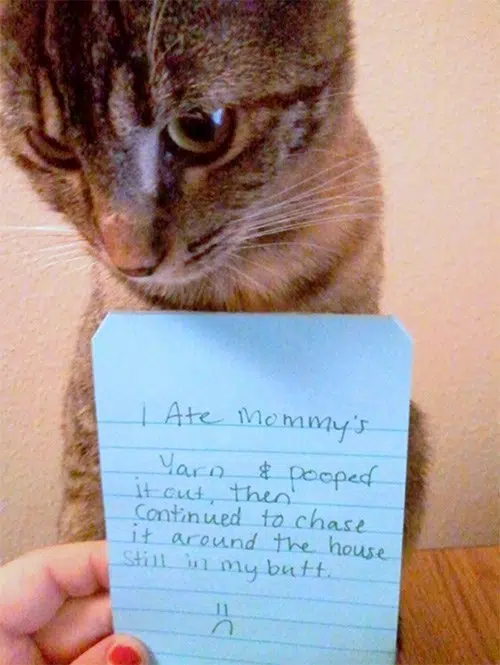 I Ate Mommy's
Yarn & pooped
it out, then
Continued to chase
it around the house
still in my butt.
=(